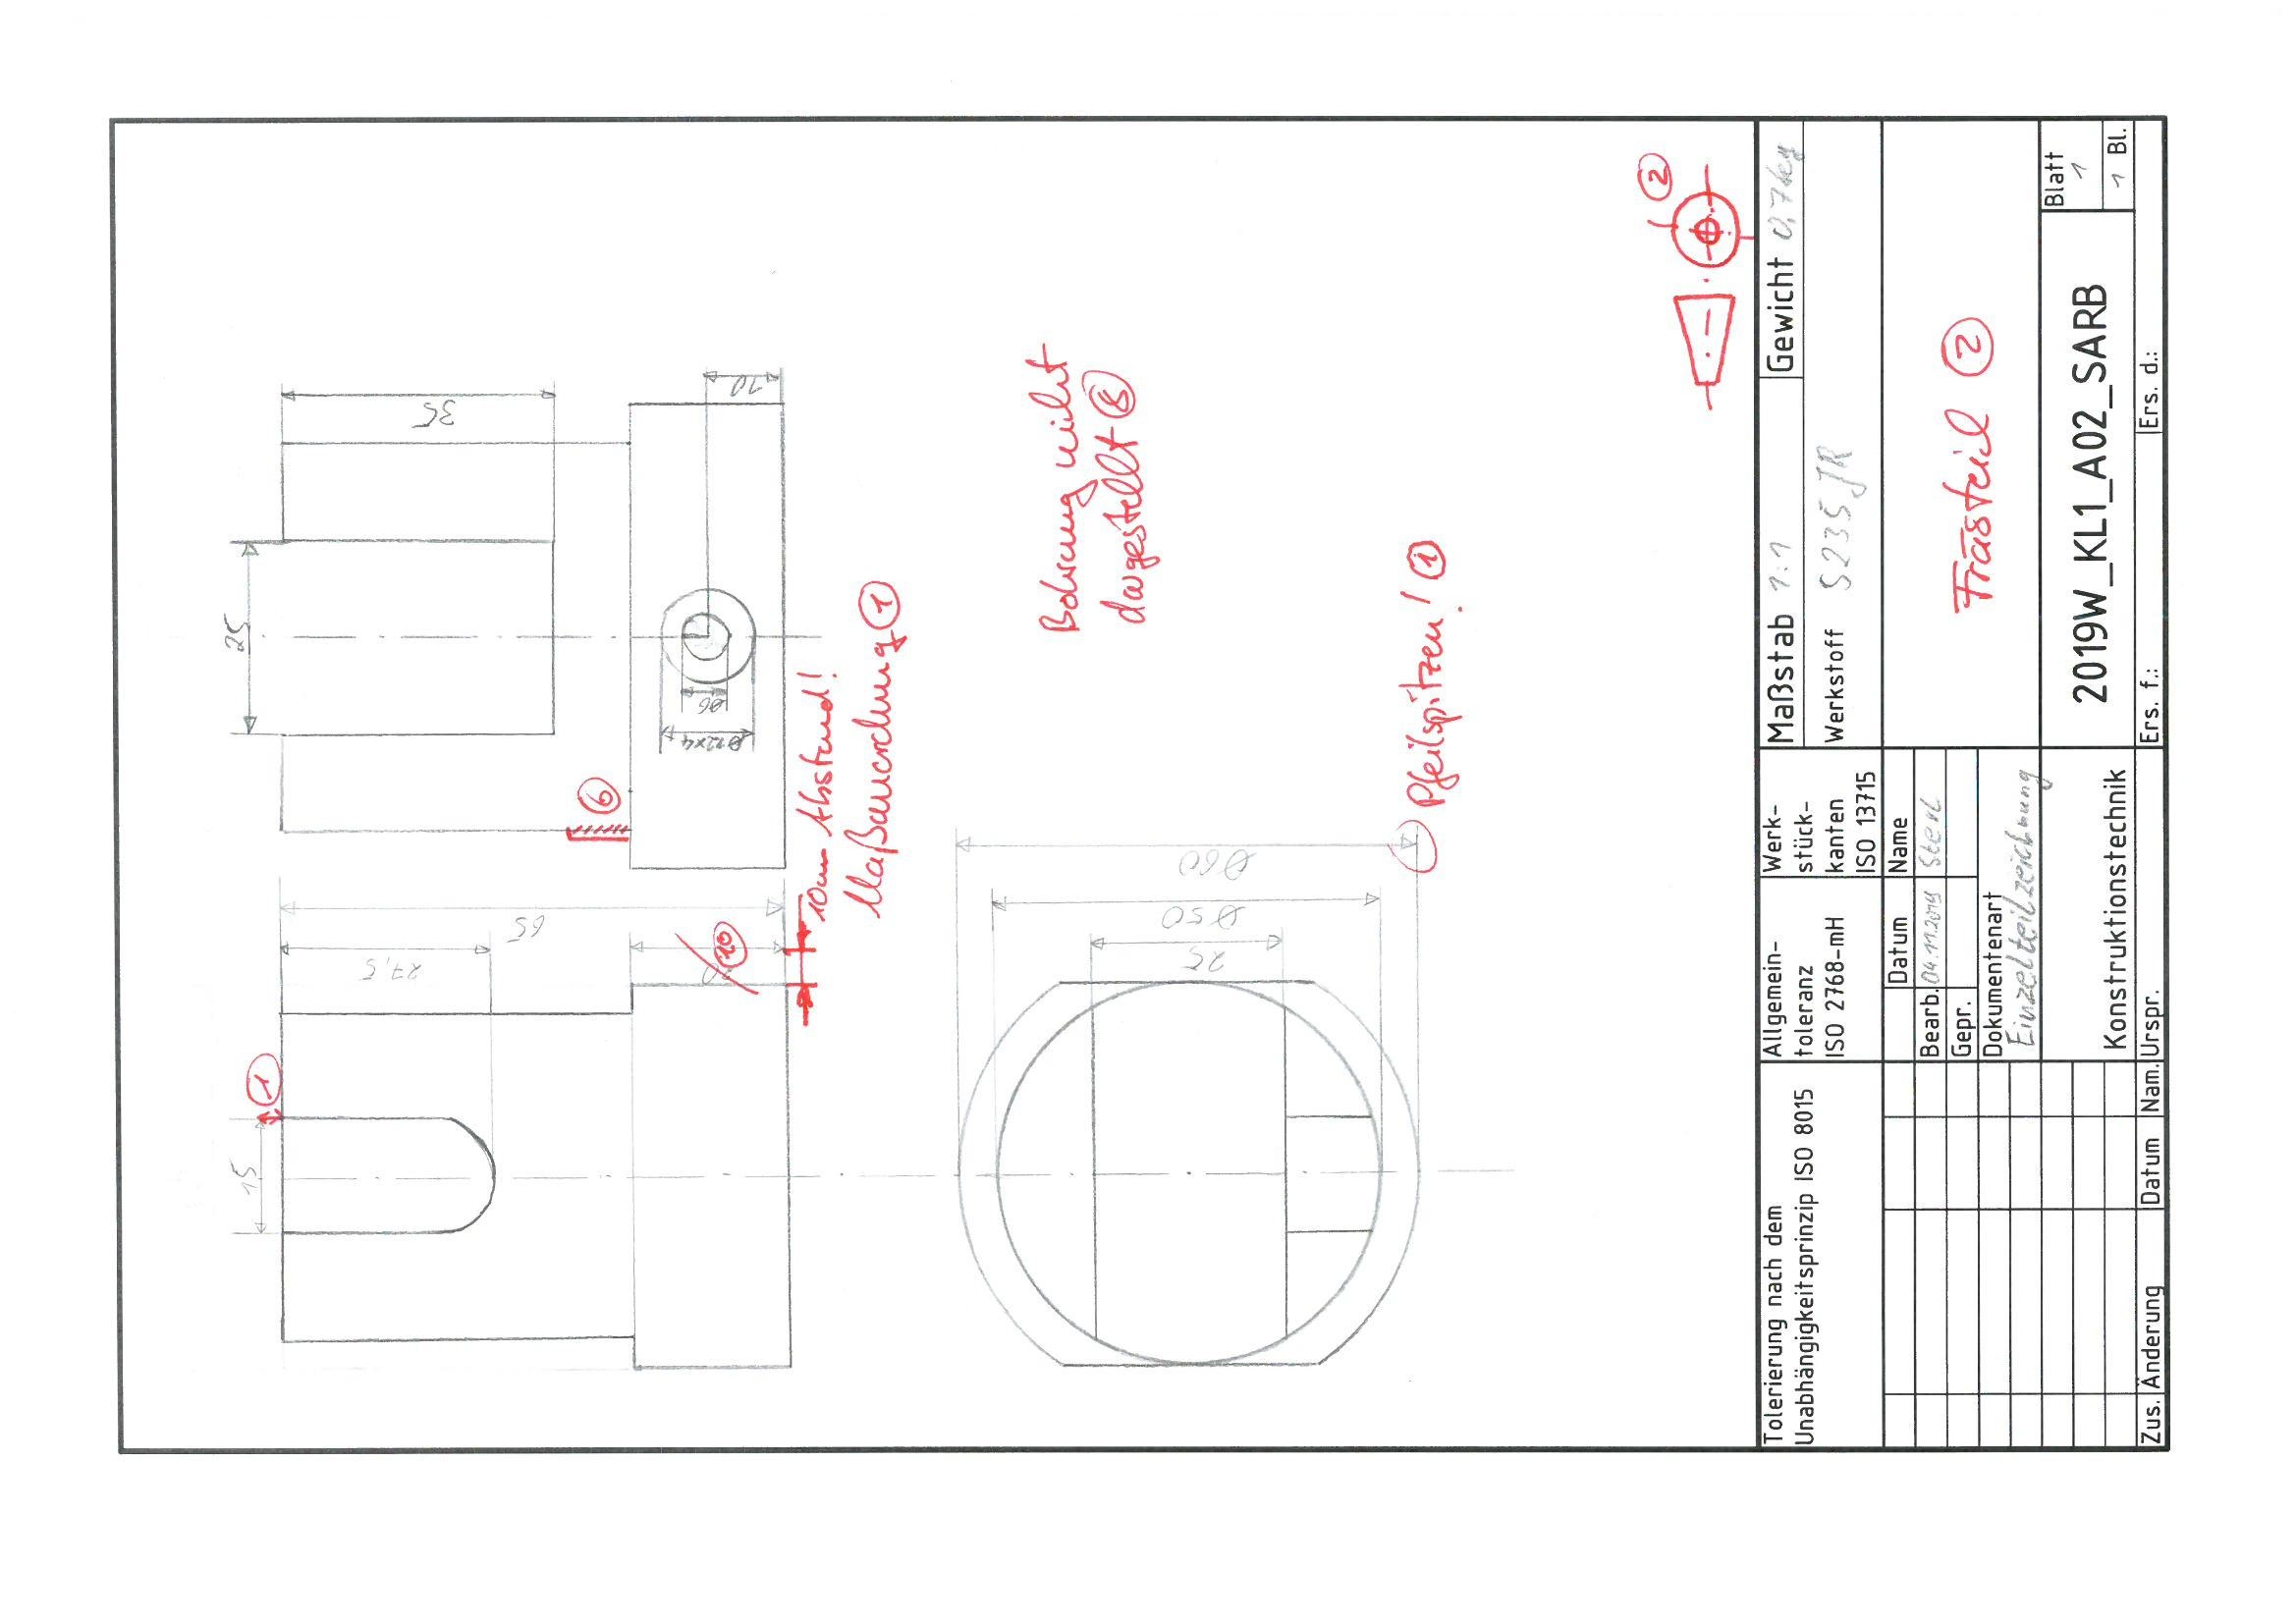 35
10
25
Ø6
Ø12x4
6
10mm Abstand!
Maßanordnung 1
65
27,5
20
10
15
1
Bohrung nicht
dargestellt 8
Pfeilspitzen! 1
Ø60
Ø50
25
2
Tolerierung nach dem
Unabhängigkeitsprinzip ISO 8015
Allgemein-
toleranz
ISO 2768-mH
Werk-
stück-
kanten
ISO 13715
Maßstab 1:1
Gewicht 0,7kg
Werkstoff S235JR
Datum
Name
Bearb. 04.11.2019
Gepr.
Dokumentenart
Einzelteilzeichnung
Frästeil 2
Konstruktionstechnik
2019W_KL1_A02_SARB
Blatt
1
1 Bl.
Zus. Änderung
Datum
Nam.
Urspr.
Ers. f.:
Ers. d.: